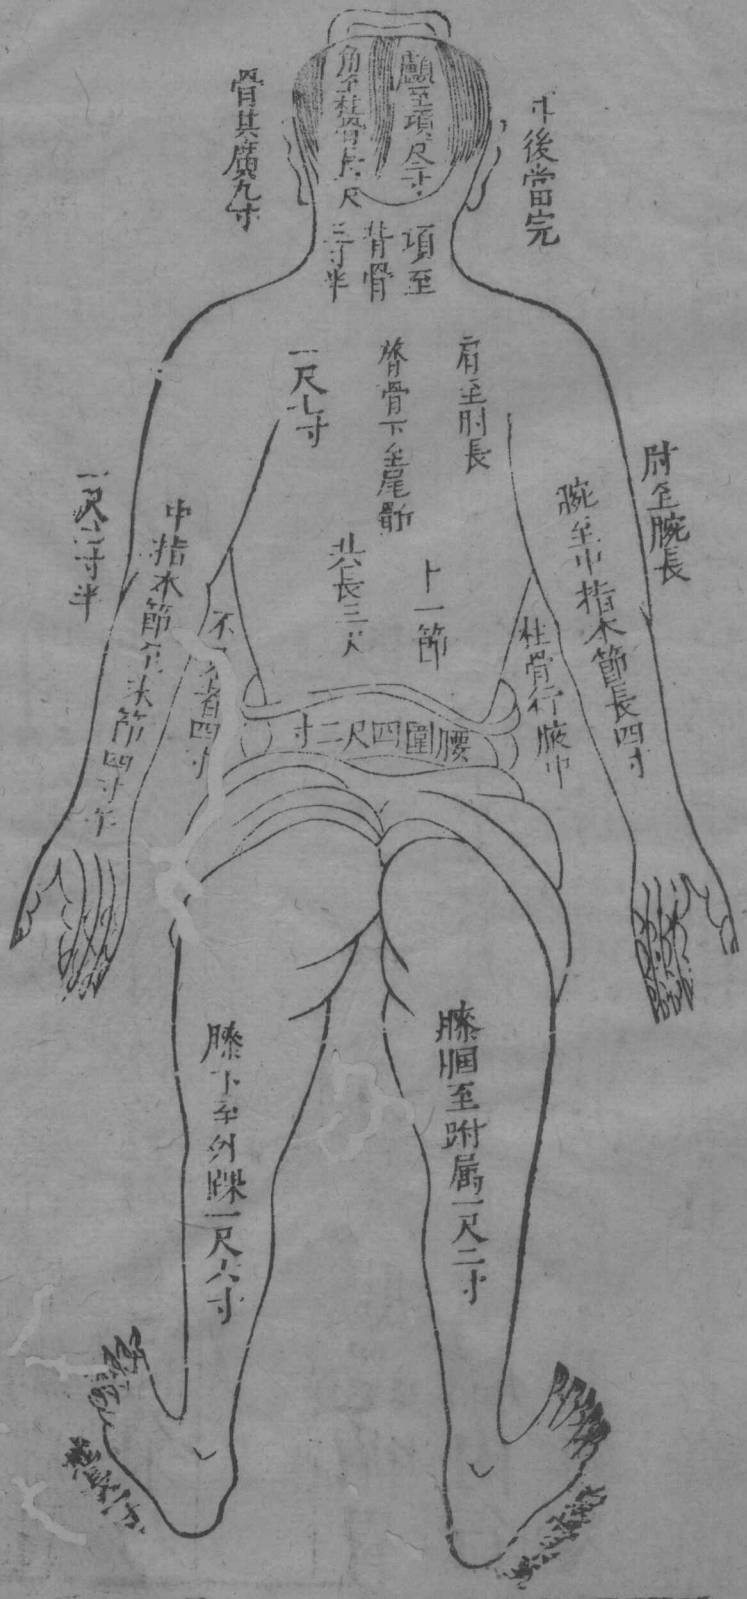 顱至項尺二寸
角至柱骨長一尺
耳後當完
骨其廣九寸
項至
背骨
二寸半
肩至肘長
一尺七寸
膂骨下至尾骶
卜一節
共長三尺
肘至腕長
一尺二寸半
腕至中指本節長四寸
中指本節至末節四寸半
柱骨行腋中
不見者四寸
腰圍四尺二寸
膝膕至跗属一尺二寸
膝下至外踝一尺六寸